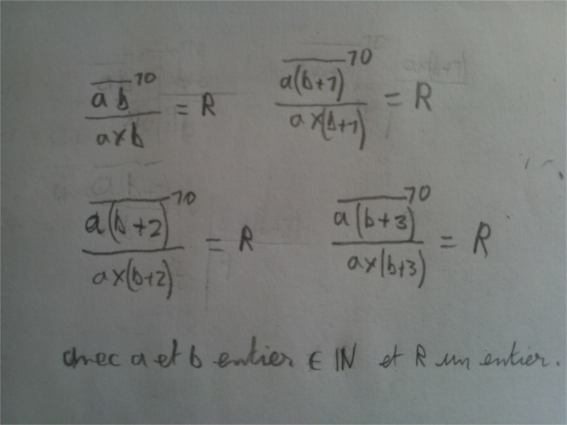 \frac{\overline{ab}^{10}}{a \times b} = R    \frac{\overline{a(b+1)}^{10}}{a \times (b+1)} = R
\frac{\overline{a(b+2)}^{10}}{a \times (b+2)} = R    \frac{\overline{a(b+3)}^{10}}{a \times (b+3)} = R
avec a et b entier ∈ ℕ et R un entier.